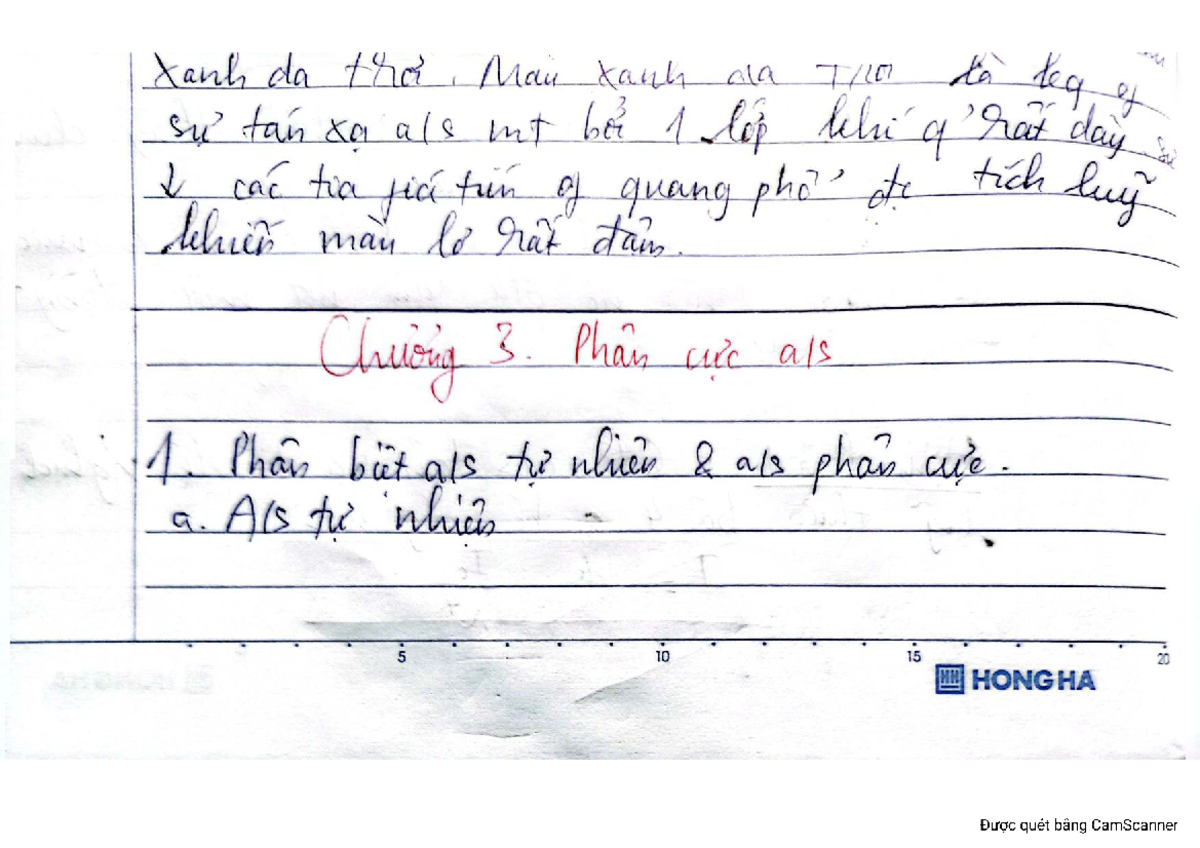 xanh da trời. Màu xanh da trời là kq of
sự tán xạ a/s mt bởi 1 lớp khí q' rất dày
↓ các tia giá tím of quang phổ đc tích luỹ
khiến màu lơ rất đậm.
Chương 3. Phân cực a/s
1. Phân biệt a/s tự nhiên & a/s phân cực.
a. A/s tự nhiên
5 10 15 20
HH HONG HA
Được quét bằng CamScanner